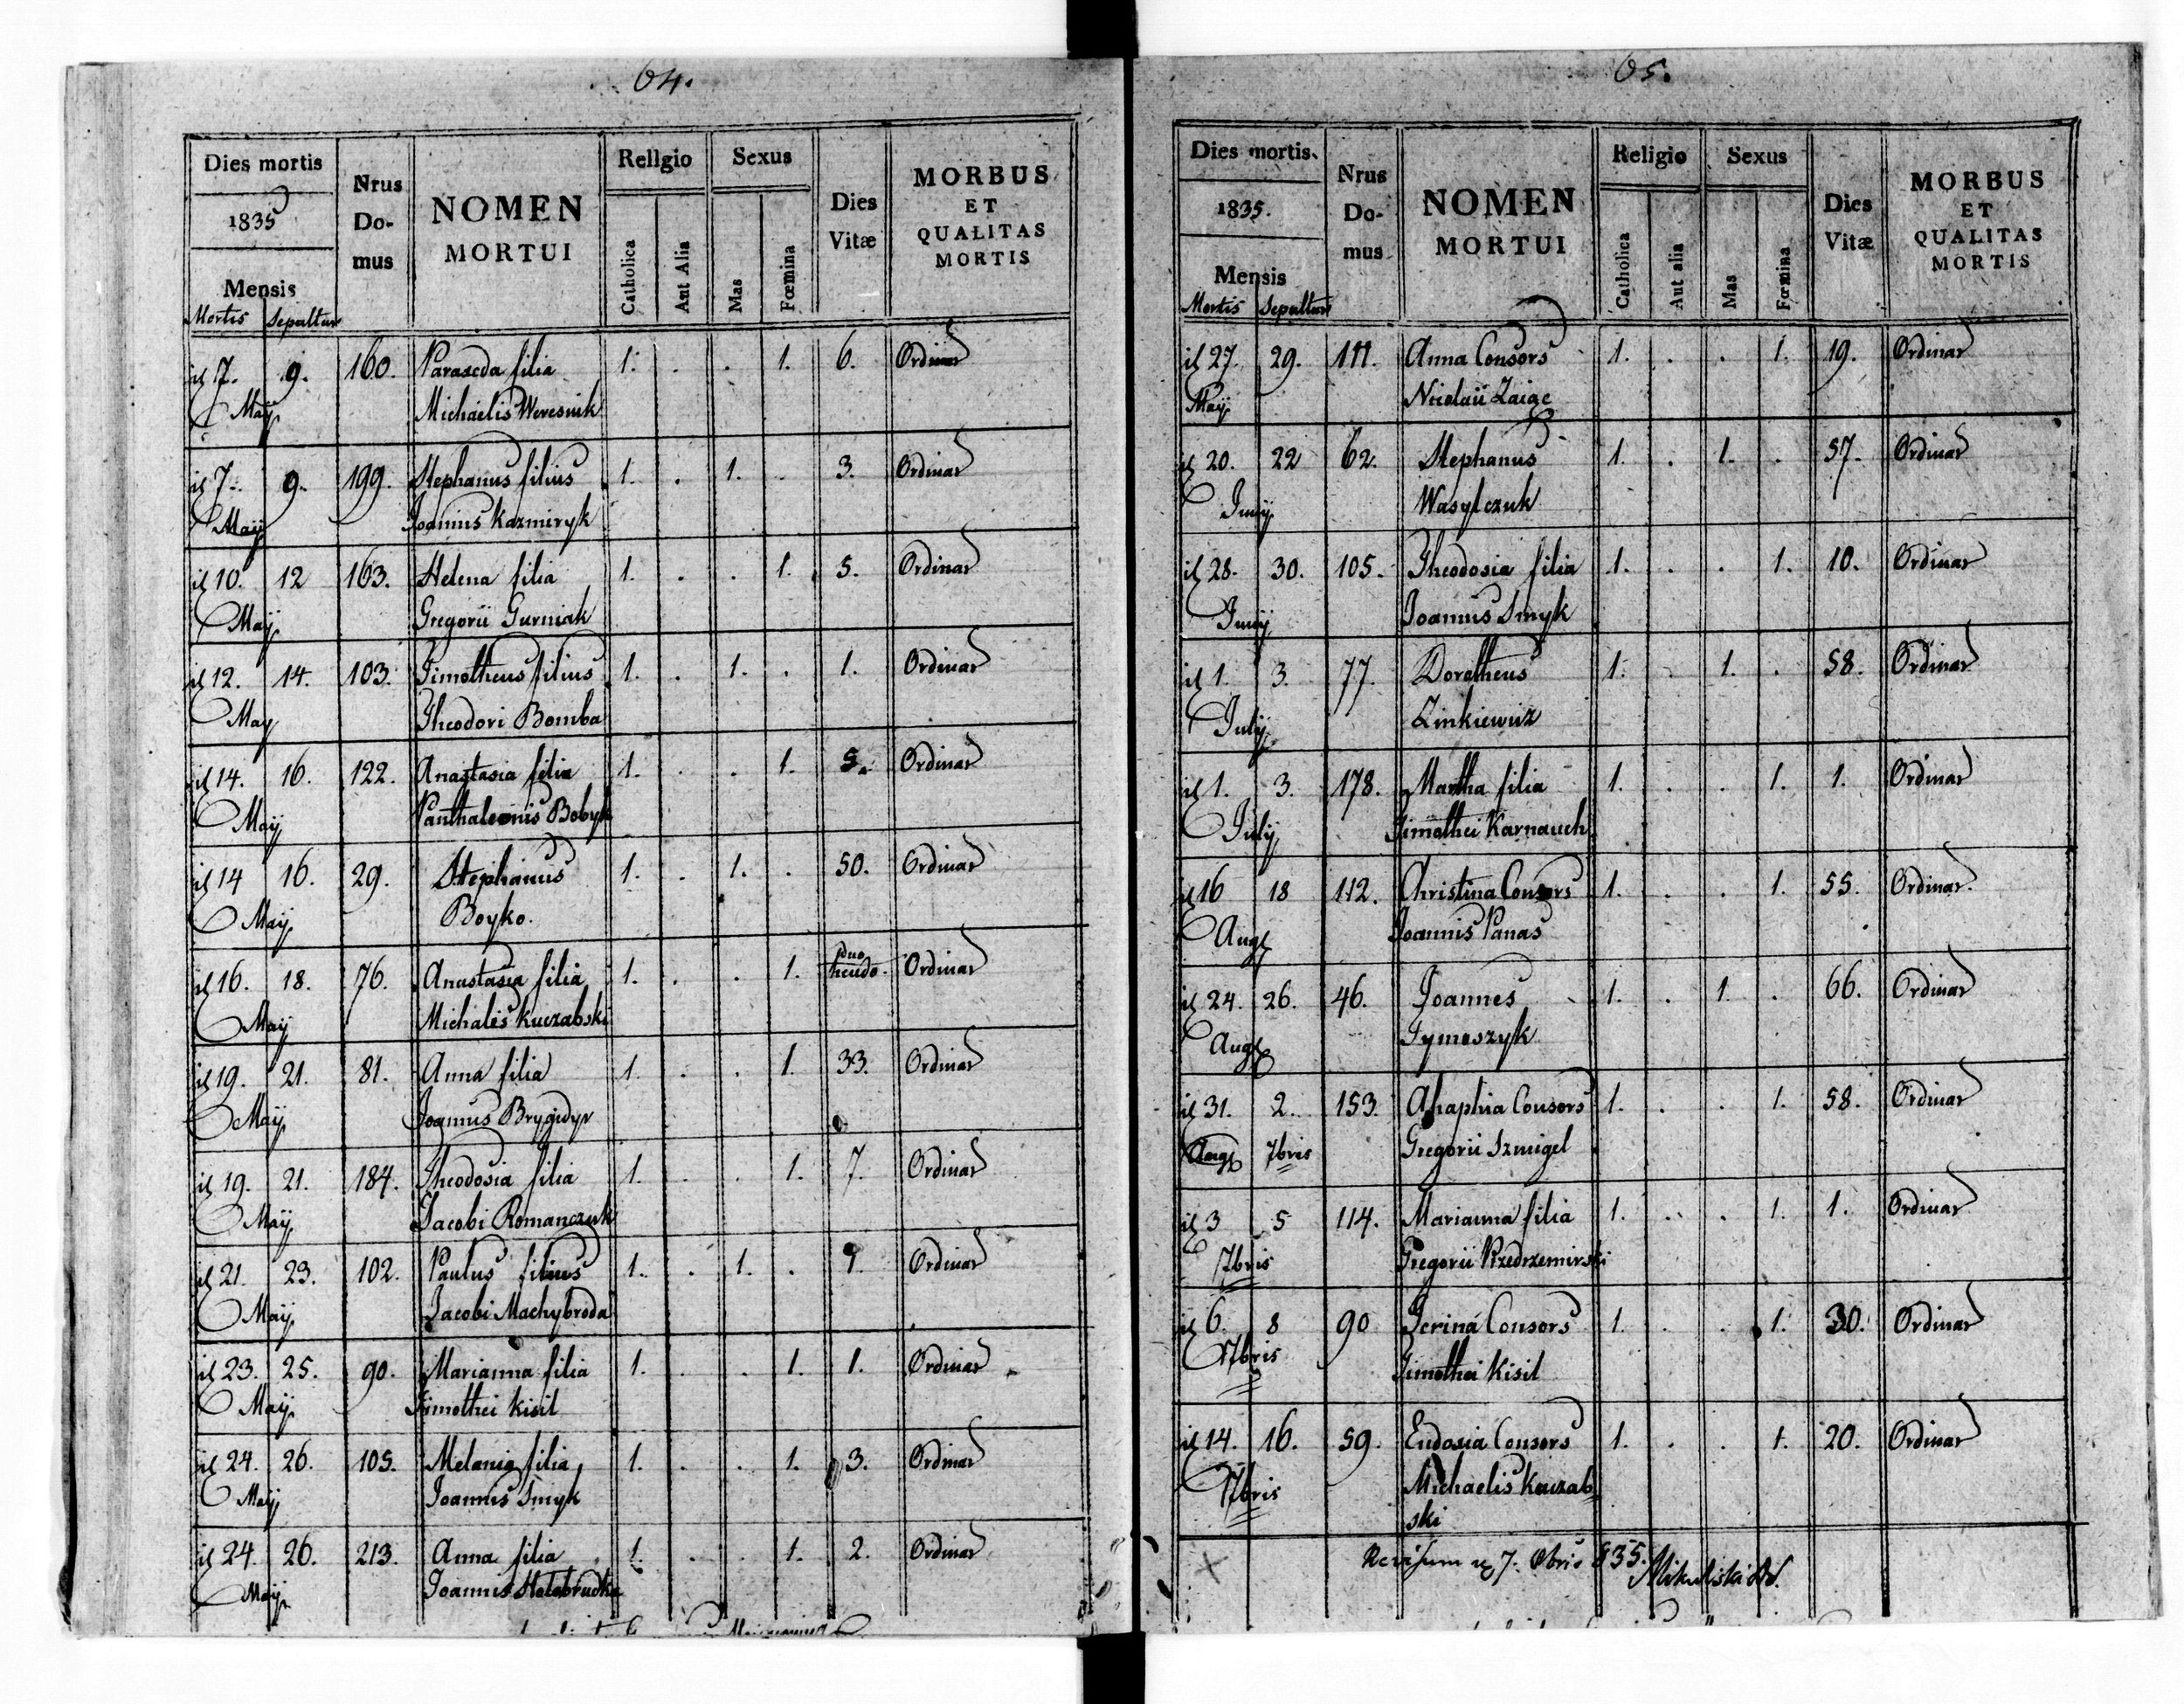 64.
Dies mortis
1835
Mensis
Mortis Sepultur
Nrus
Do-
mus
NOMEN
MORTUI
Religio
Catholica
Aut Alia
Sexus
Mas
Fœmina
Dies
Vitæ
MORBUS
ET
QUALITAS
MORTIS
7. 9. 160. Parasceda filia 1. . . 1. 6. Ordinar
Maij Michaelis Weresnik
7. 9. 199. Stephanus filius 1. . 1. . 3. Ordinar
Maij Joannis Kazmiryk
10. 12 163. Helena filia 1. . . 1. 5. Ordinar
Maij Gregorii Gurniak
12. 14. 103. Timotheus filius 1. . 1. . 1. Ordinar
May Theodori Bomba
14. 16. 122. Anastasia filia 1. . . 1. 5. Ordinar
Maij Panthaleonis Bobyk
14 16. 29. Stephanus 1. . 1. . 50. Ordinar
Maij Boyko.
16. 18. 76. Anastasia filia 1. . . 1. duo Ordinar
Maij Michalis Kuczabski
19. 21. 81. Anna filia 1. . . 1. 33. Ordinar
Maij Joannis Brygidyr
19. 21. 184. Theodosia filia 1. . . 1. 7. Ordinar
Maij Jacobi Romanczuk
21. 23. 102. Paulus filius 1. . 1. . 9. Ordinar
Maij Jacobi Machybroda
23. 25. 90. Marianna filia 1. . . 1. 1. Ordinar
Maij Timothei Kisil
24. 26. 105. Melania filia 1. . . 1. 3. Ordinar
Maij Joannis Smyk
24. 26. 213. Anna filia 1. . . 1. 2. Ordinar
Maij Joannis Holobrudka
65.
Dies mortis.
1835.
Mensis
Mortis Sepultur
Nrus
Do-
mus
NOMEN
MORTUI
Religio
Catholica
Aut alia
Sexus
Mas
Fœmina
Dies
Vitæ
MORBUS
ET
QUALITAS
MORTIS
27. 29. 111. Anna Consors 1. . . 1. 19. Ordinar
Maij Nicolaii Zaigc
20. 22 62. Stephanus 1. . 1. . 57. Ordinar
Junij Wasylczuk
28. 30. 105. Theodosia filia 1. . . 1. 10. Ordinar
Junij Joannis Smyk
1. 3. 77. Dorotheus 1. . 1. . 58. Ordinar
Julij Zinkiewicz
1. 3. 178. Martha filia 1. . . 1. 1. Ordinar
Julij Timothei Karnauch
16 18 112. Christina Consors 1. . . 1. 55. Ordinar.
Aug Joannis Panas
24. 26. 46. Joannes 1. . 1. . 66. Ordinar
Aug Tymoszyk
31. 2. 153. Ahaphia Consors 1. . . 1. 58. Ordinar
Aug 7bris Gregorii Szmigel
3 5 114. Marianna filia 1. . . 1. 1. Ordinar
7bris Gregorii Przedrzemirski
6. 8 90 Jerina Consors 1. . . 1. 30. Ordinar
7bris Timothei Kisil
14. 16. 59. Eudosia Consors 1. . . 1. 20. Ordinar
7bris Michaelis Kuczab
ski
Revisum 7. 835.